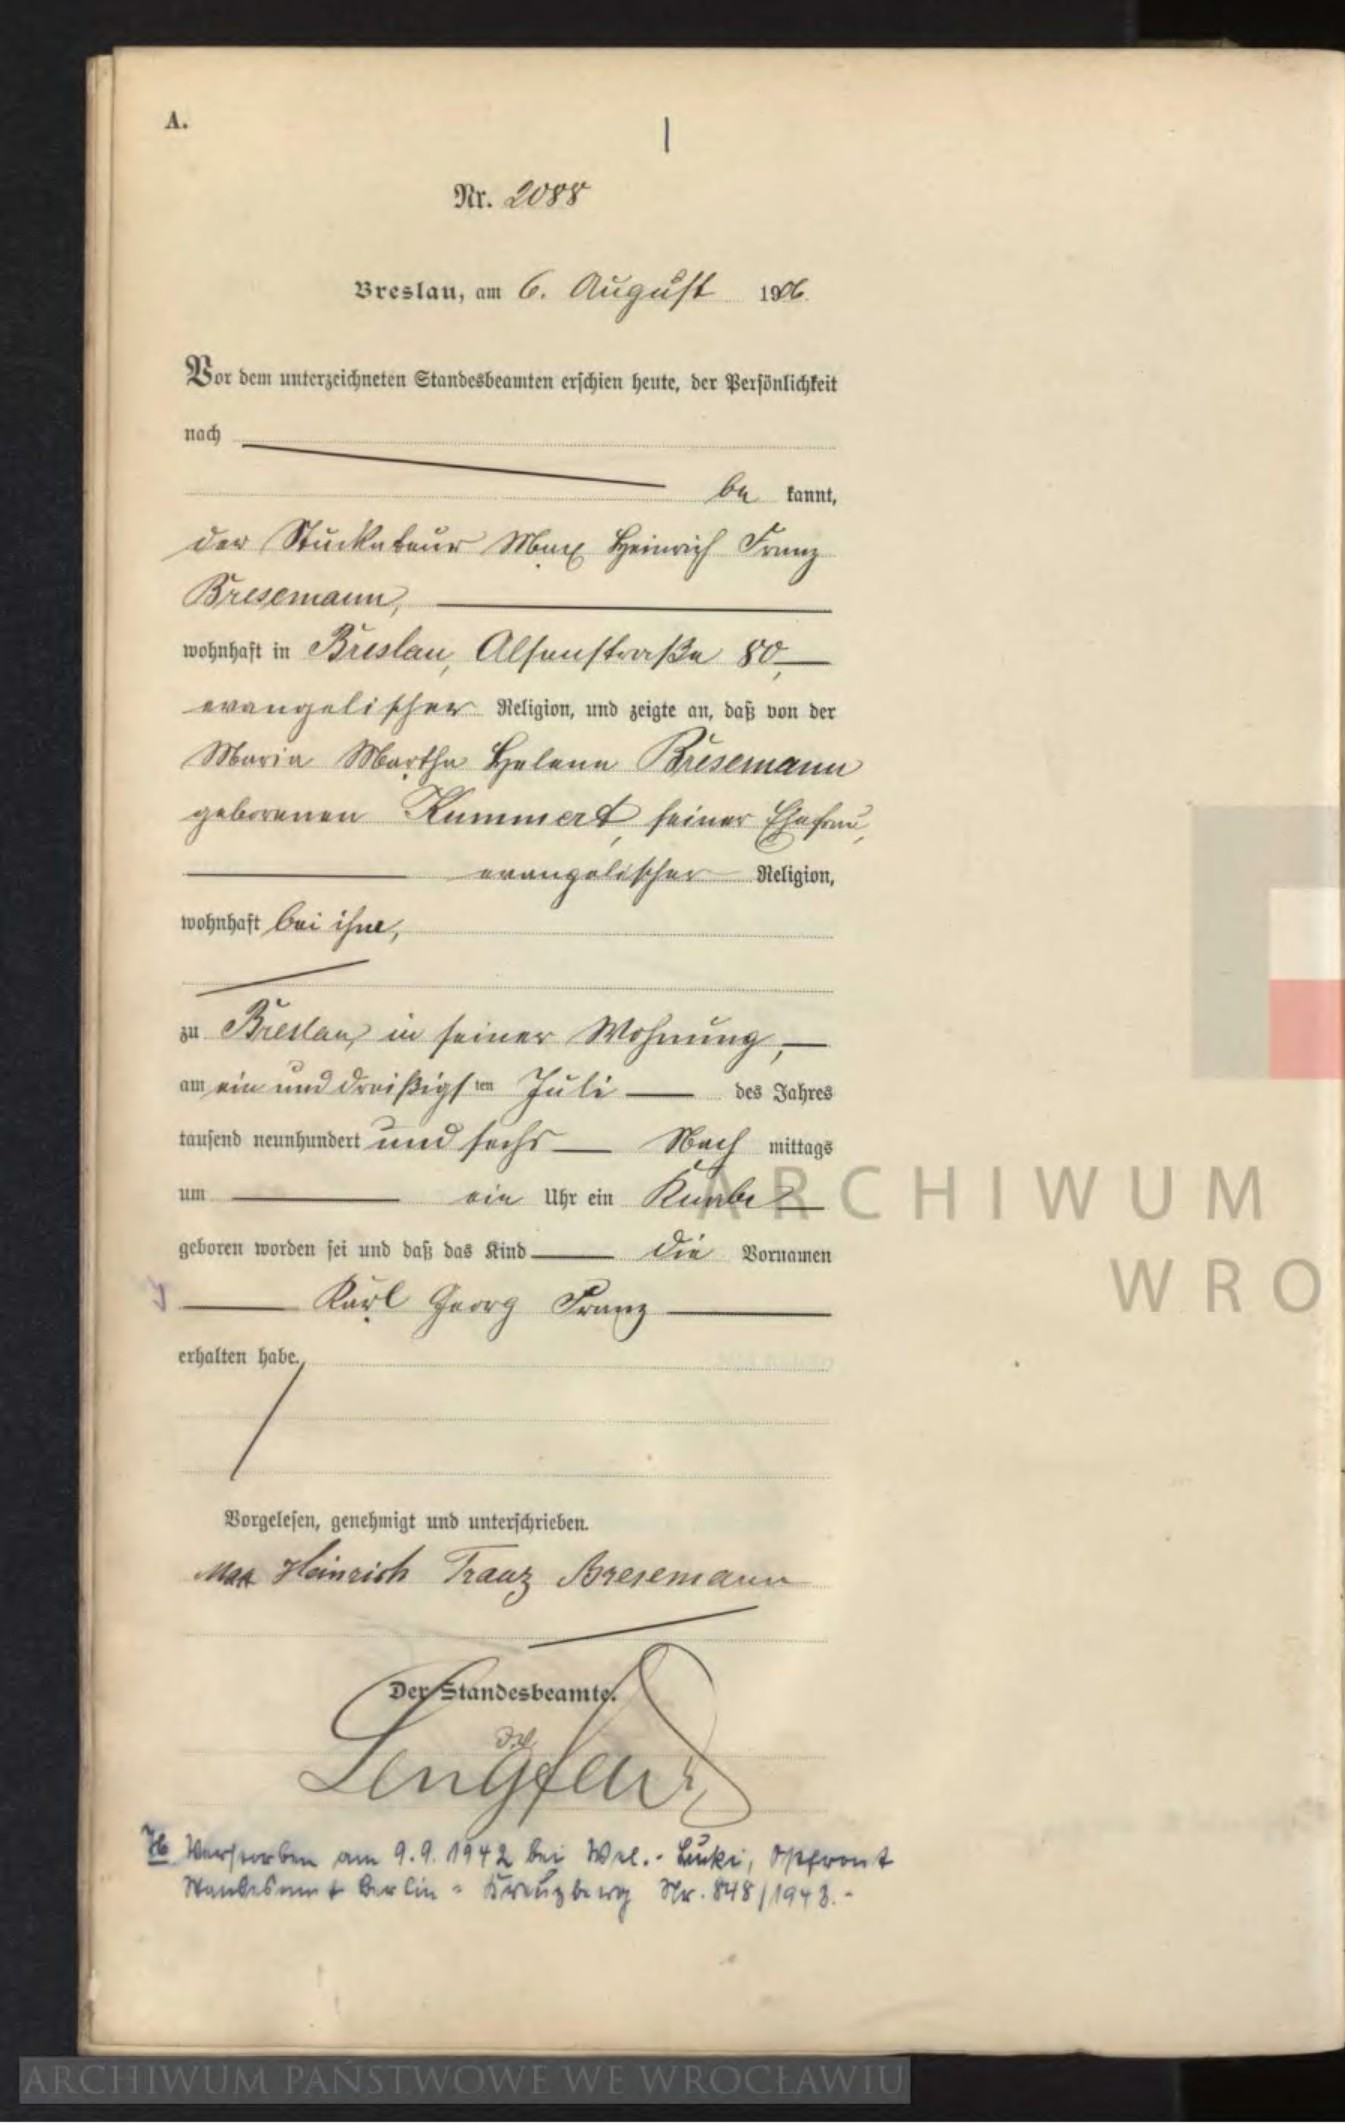 A.
Nr. 2088
Breslau, am 6. August 1906.
Vor dem unterzeichneten Standesbeamten erschien heute, der Persönlichkeit
nach
be kannt,
der Stuckateur Max Heinrich Franz
Bresemann,
wohnhaft in Breslau, Alsenstraße 80,
evangelischer Religion, und zeigte an, daß von der
Maria Martha Helene Bresemann
geborenen Kummert, seiner Ehefrau,
evangelischer Religion,
wohnhaft bei ihm,
zu Breslau, in seiner Wohnung,
am ein und dreißigsten Juli des Jahres
tausend neunhundert und sechs Nach mittags
um ein Uhr ein Knabe
geboren worden sei und daß das Kind die Vornamen
Karl Georg Franz
erhalten habe.
Vorgelesen, genehmigt und unterschrieben.
Max Heinrich Franz Bresemann
Der Standesbeamte.
Verstorben am 9.9.1942 bei Wel.- Luki, Ostfront
Standesamt Berlin - Kreuzberg Nr. 848/1943.-
ARCHIWUM
WRO
ARCHIWUM PAŃSTWOWE WE WROCŁAWIU